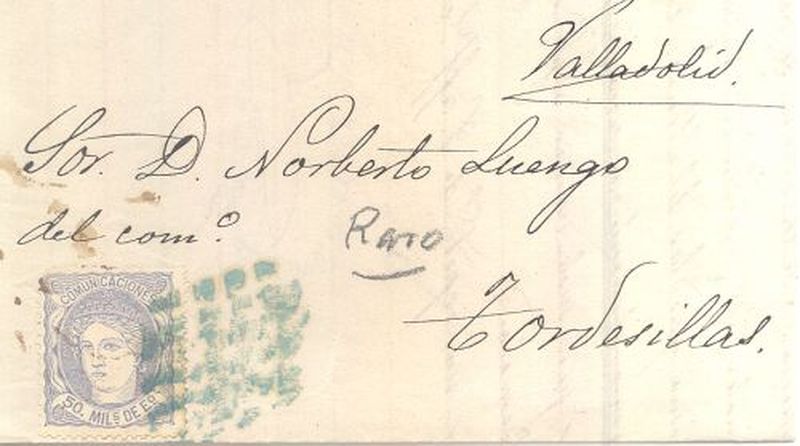 Valladolid.
Sor. D. Norberto Luengo
del com.º
Raro
Tordesillas.
COMUNICACIONES
50. MILS DE EO